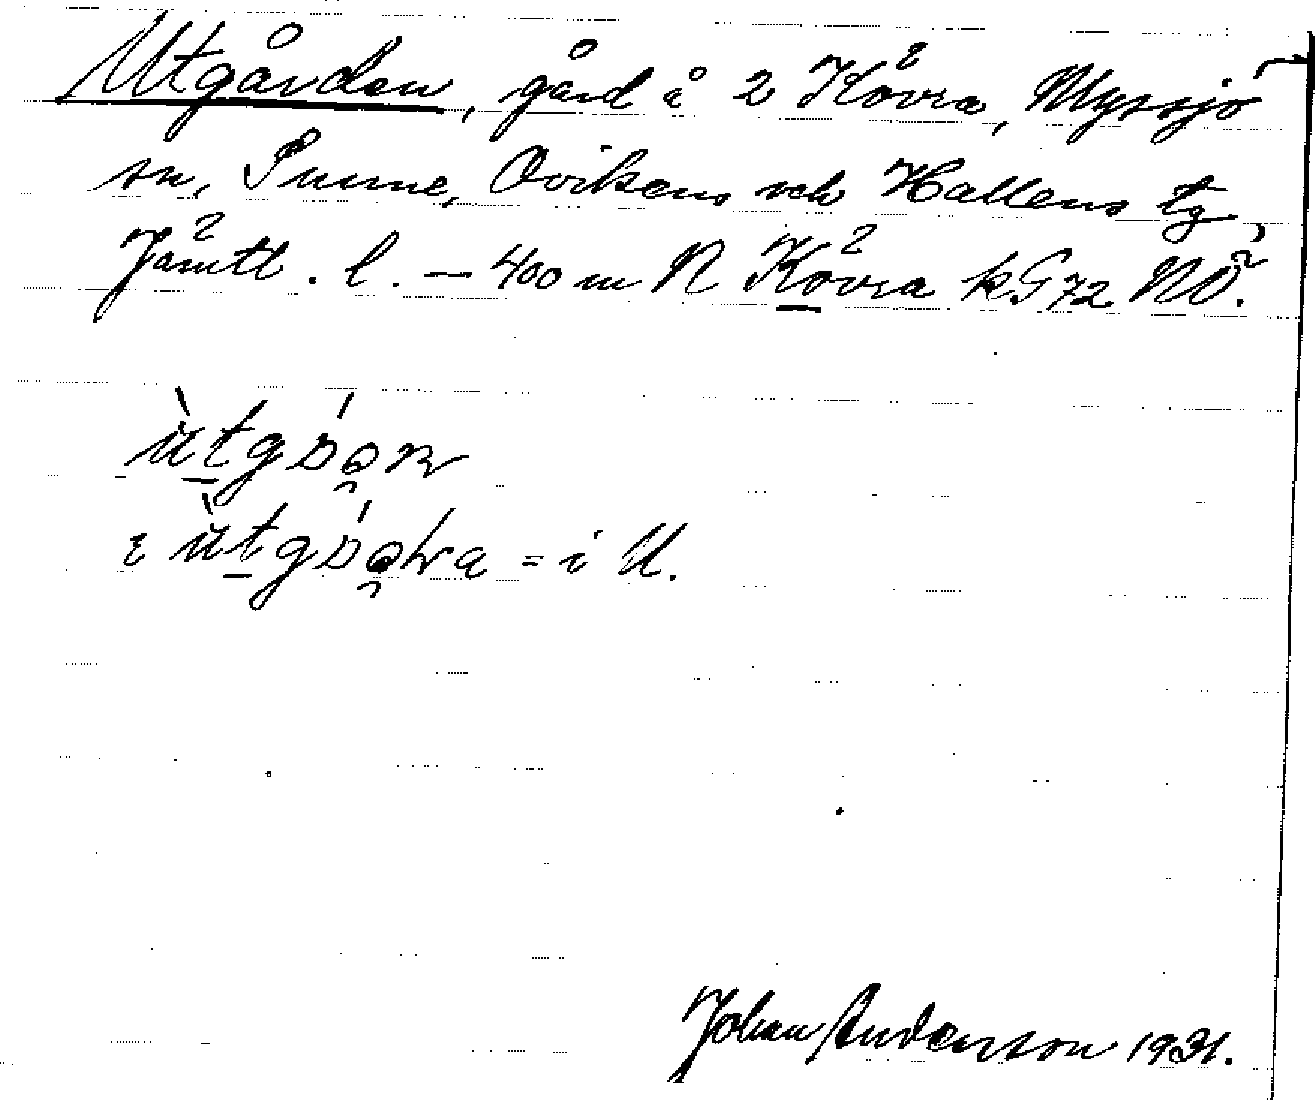 Utgården, gård å 2 Kövra, Myssjö
sn, Sunne, Ovikens och Hallens tg,
Jämtl. l. — 400 m N Kövra kG72 NÖ.
= i U.
Johan Anderson 1931.